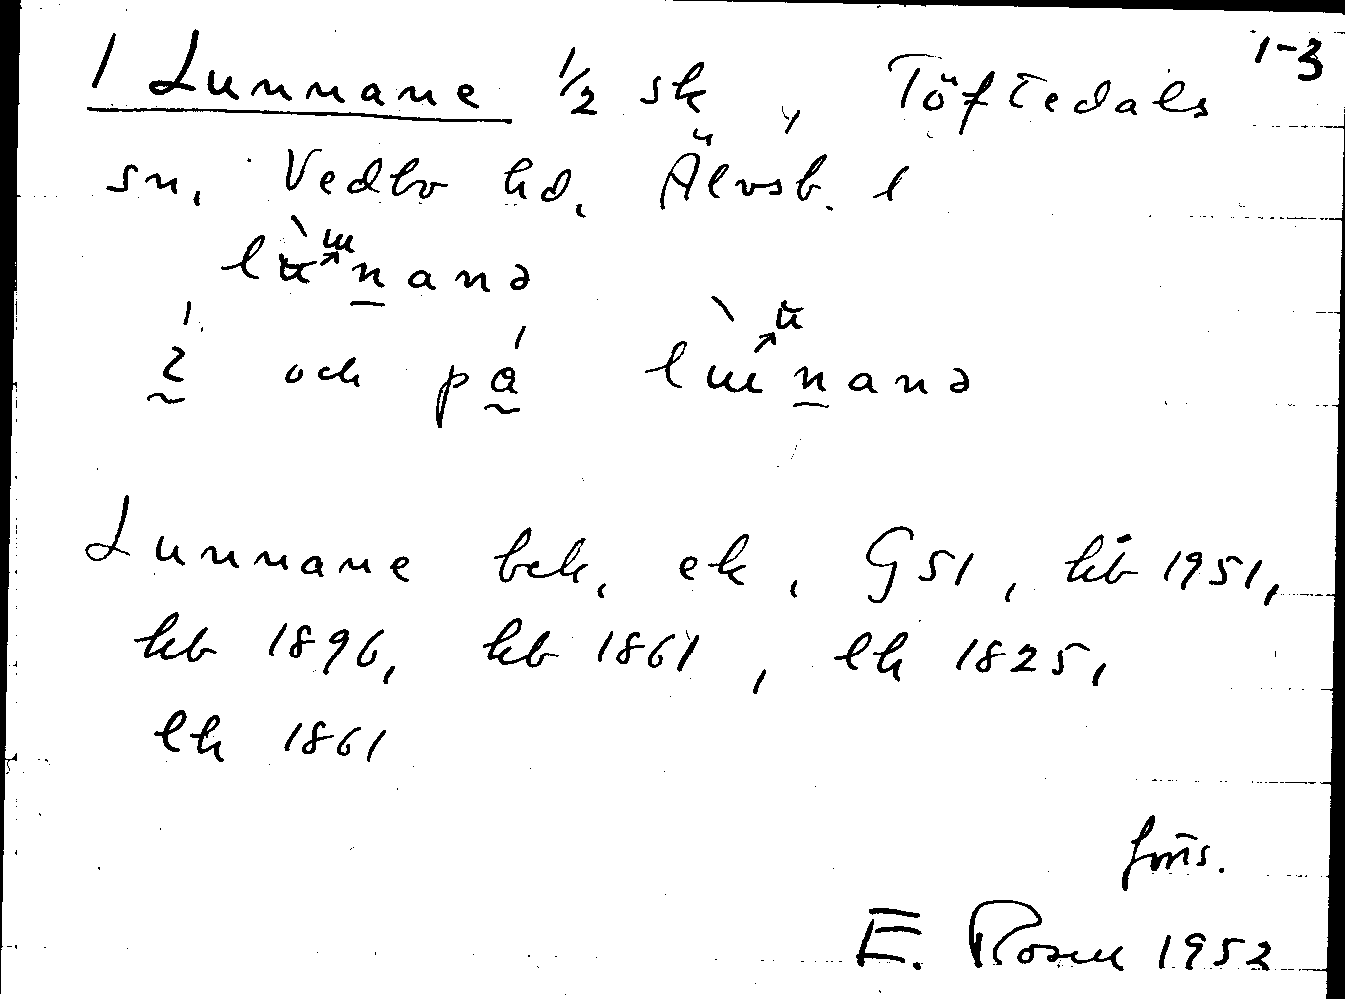 1-3
1 Lunnane 1/2 sk, Töftedals
sn, Vedbo hd, Älvsb. l
och på
Lunnane bek, ek, G51, kb 1951,
hb 1896, hb 1861, lh 1825,
lh 1861
fms.
E. Rosell 1952